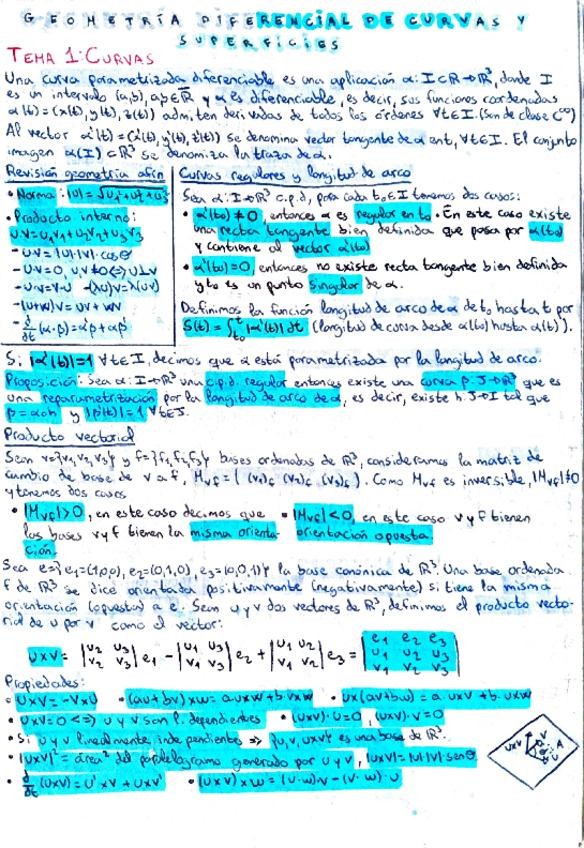 GEOMETRÍA DIFERENCIAL DE CURVAS Y
SUPERFICIES
TEMA 1: CURVAS
Una curva parametrizada diferenciable es una aplicación α: I⊂R→R³, donde I
es un intervalo (a,b), a,b∈R̅ y α es diferenciable, es decir, sus funciones coordenadas
α(t)=(x(t), y(t), z(t)) admiten derivadas de todos los órdenes ∀t∈I. (Son de clase C^∞)
Al vector α'(t)=(x'(t), y'(t), z'(t)) se denomina vector tangente de α en t, ∀t∈I. El conjunto
imagen α(I)⊂R³ se denomina la traza de α.
Revisión geometría afín
• Norma: |U|=√(u₁²+u₂²+u₃²)
• Producto interno:
U·V=U₁V₁+U₂V₂+U₃V₃
-U·V=|U|·|V|·cosθ
-U·V=0, U,V≠0⇔U⊥V
-U·V=V·U -(λU)V=λ(UV)
-(U+W)V=UV+WV
-d/dt(α·β)=α'β+αβ'
Curvas regulares y longitud de arco
Sea α: I→R³ c.p.d, para cada t₀∈I tenemos dos casos:
• α'(t₀)≠0, entonces α es regular en t₀. En este caso existe
una recta tangente bien definida que pasa por α(t₀)
y contiene al vector α'(t₀)
• α'(t₀)=0 entonces no existe recta tangente bien definida
y t₀ es un punto singular de α.
Definimos la función longitud de arco de α de t₀ hasta t por
S(t)=∫_{t₀}^{t}|α'(t)|dt (longitud de curva desde α(t₀) hasta α(t)).
Si |α'(t)|=1 ∀t∈I, decimos que α está parametrizada por la longitud de arco.
Proposición: Sea α: I→R³ una c.p.d. regular entonces existe una curva β: J→R³ que es
una reparametrización por la longitud de arco de α, es decir, existe h: J→I tal que
β=α∘h y |β'(t)|=1 ∀t∈J.
Producto vectorial
Sean v={v₁,v₂,v₃} y f={f₁,f₂,f₃} bases ordenadas de R³, consideramos la matriz de
cambio de base de v a f, M_vf=((v₁)_f (v₂)_f (v₃)_f). Como M_vf es inversible, |M_vf|≠0
y tenemos dos casos
• |M_vf|>0, en este caso decimos que
las bases v y f tienen la misma orienta-
ción.
• |M_vf|<0, en este caso v y f tienen
orientación opuesta.
Sea e={e₁=(1,0,0), e₂=(0,1,0), e₃=(0,0,1)} la base canónica de R³. Una base ordenada
f de R³ se dice orientada positivamente (negativamente) si tiene la misma
orientación (opuesta) a e. Sean u y v dos vectores de R³, definimos el producto vecto-
rial de u por v como el vector:
U×V= |U₂ U₃; V₂ V₃| e₁ - |U₁ U₃; V₁ V₃| e₂ + |U₁ U₂; V₁ V₂| e₃ = |e₁ e₂ e₃; U₁ U₂ U₃; V₁ V₂ V₃|
Propiedades:
• U×V=-V×U • (au+bv)×w=a·u×w+b·v×w • u×(av+bw)=a·u×v+b·u×w
• U×V=0⇔U y V son l. dependientes • (U×V)·U=0, (U×V)·V=0
• Si U y V linealmente independientes ⇒ {U,V,U×V} es una base de R³.
• |U×V|²=área² del paralelogramo generado por U y V, |U×V|=|U|·|V|·senθ
• d/dt(U×V)=U'×V+U×V' • (U×V)×W=(U·W)V-(V·W)·U
U×V V A U